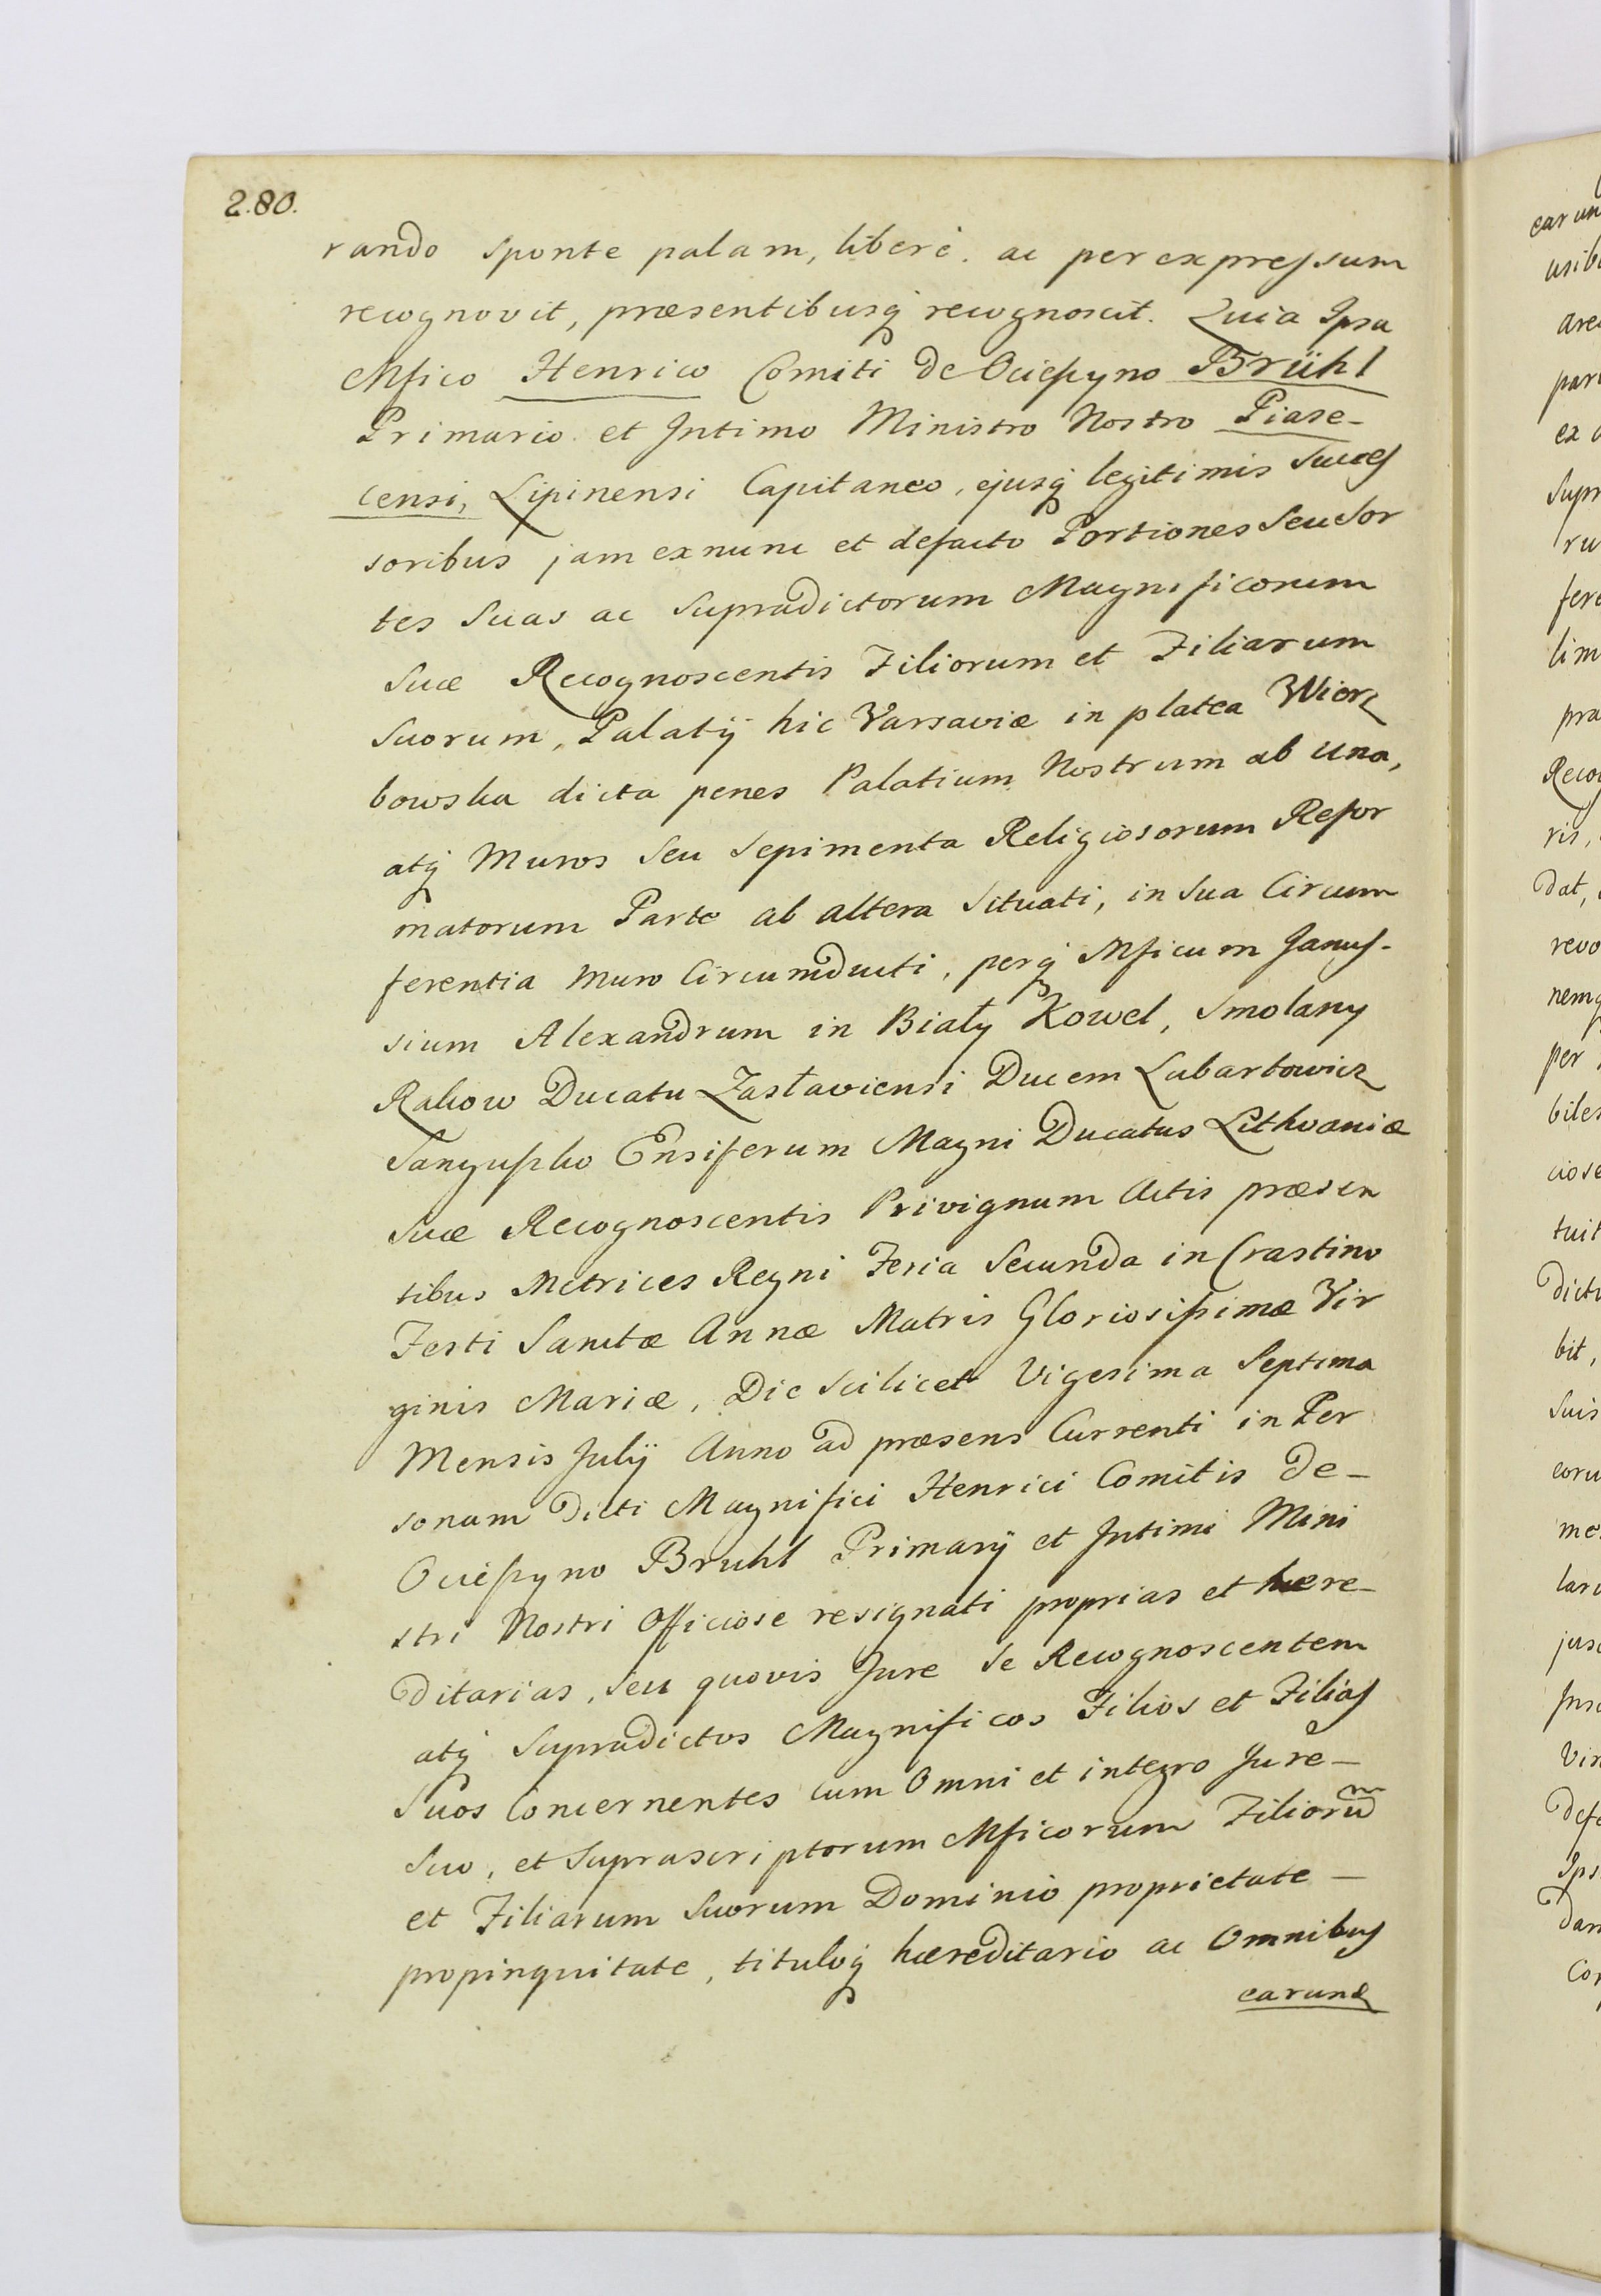 280.
rando sponte palam, liberè. ac per expressum
recognovit, præsentibusq́ recognoscit. Quia Ipsa
Mfico Henrico Comiti de Ocieszyno Brühl
Primario et Intimo Ministro Nostro Piase-
censi, Lipinensi Capitaneo, ejusq́ legitimis Succes
soribus jam exnunc et defacto Portiones Seu Sor
tes Suas ac Supradictorum Magnificorum
Suæ Recognoscentis Filiorum et Filiarum
Suorum, Palatÿ hic Varsaviæ in platea Wierz
bowska dicta penes Palatium Nostrum ab una,
atq́ Muros Seu Sepimenta Religiosorum Refor
matorum Parte ab altera Situati, in Sua Circum
ferentia Muro Circumducti, perq́ Mficum Janus-
sium Alexandrum in Biały Kowel, Smolany
Rakow Ducatu Zasłaviensi Ducem Lubartowicz
Sanguszko Ensiferum Magni Ducatus Lithvaniæ
Suæ Recognoscentis Privignum Actis præsen
tibus Metrices Regni Feria Secunda in Crastino
Festi Sanctæ Annæ Matris Gloriosissimæ Vir
ginis Mariæ, Die Scilicet Vigesima Septima
Mensis Julÿ Anno ad præsens Currenti in Per
sonam Dicti Magnifici Henrici Comitis de-
Ocieszyno Bruhl Primarÿ et Intimi Mini
stri Nostri Officiose resignati proprias et hære-
ditarias, Seu quovis Jure Se Recognoscentem
atq́ Supradictos Magnificos Filios et Filias
Suos Concernentes cum Omni et integro Jure-
Suo, et Suprascriptorum Mficorum Filiorum̃
et Filiarum Suorum Dominio proprietate-
propinquitate, tituloq́ hæreditario ac Omnibus
earund
earun
usib
pari
ex
Supr
ru
fere
lim
pra
Reco
ris,
dat,
revo
nemq
per
biles
ciose
tuit
dictu
bit,
Suis
eoru
lari
Vir
Defe
Ips
Dan
Con